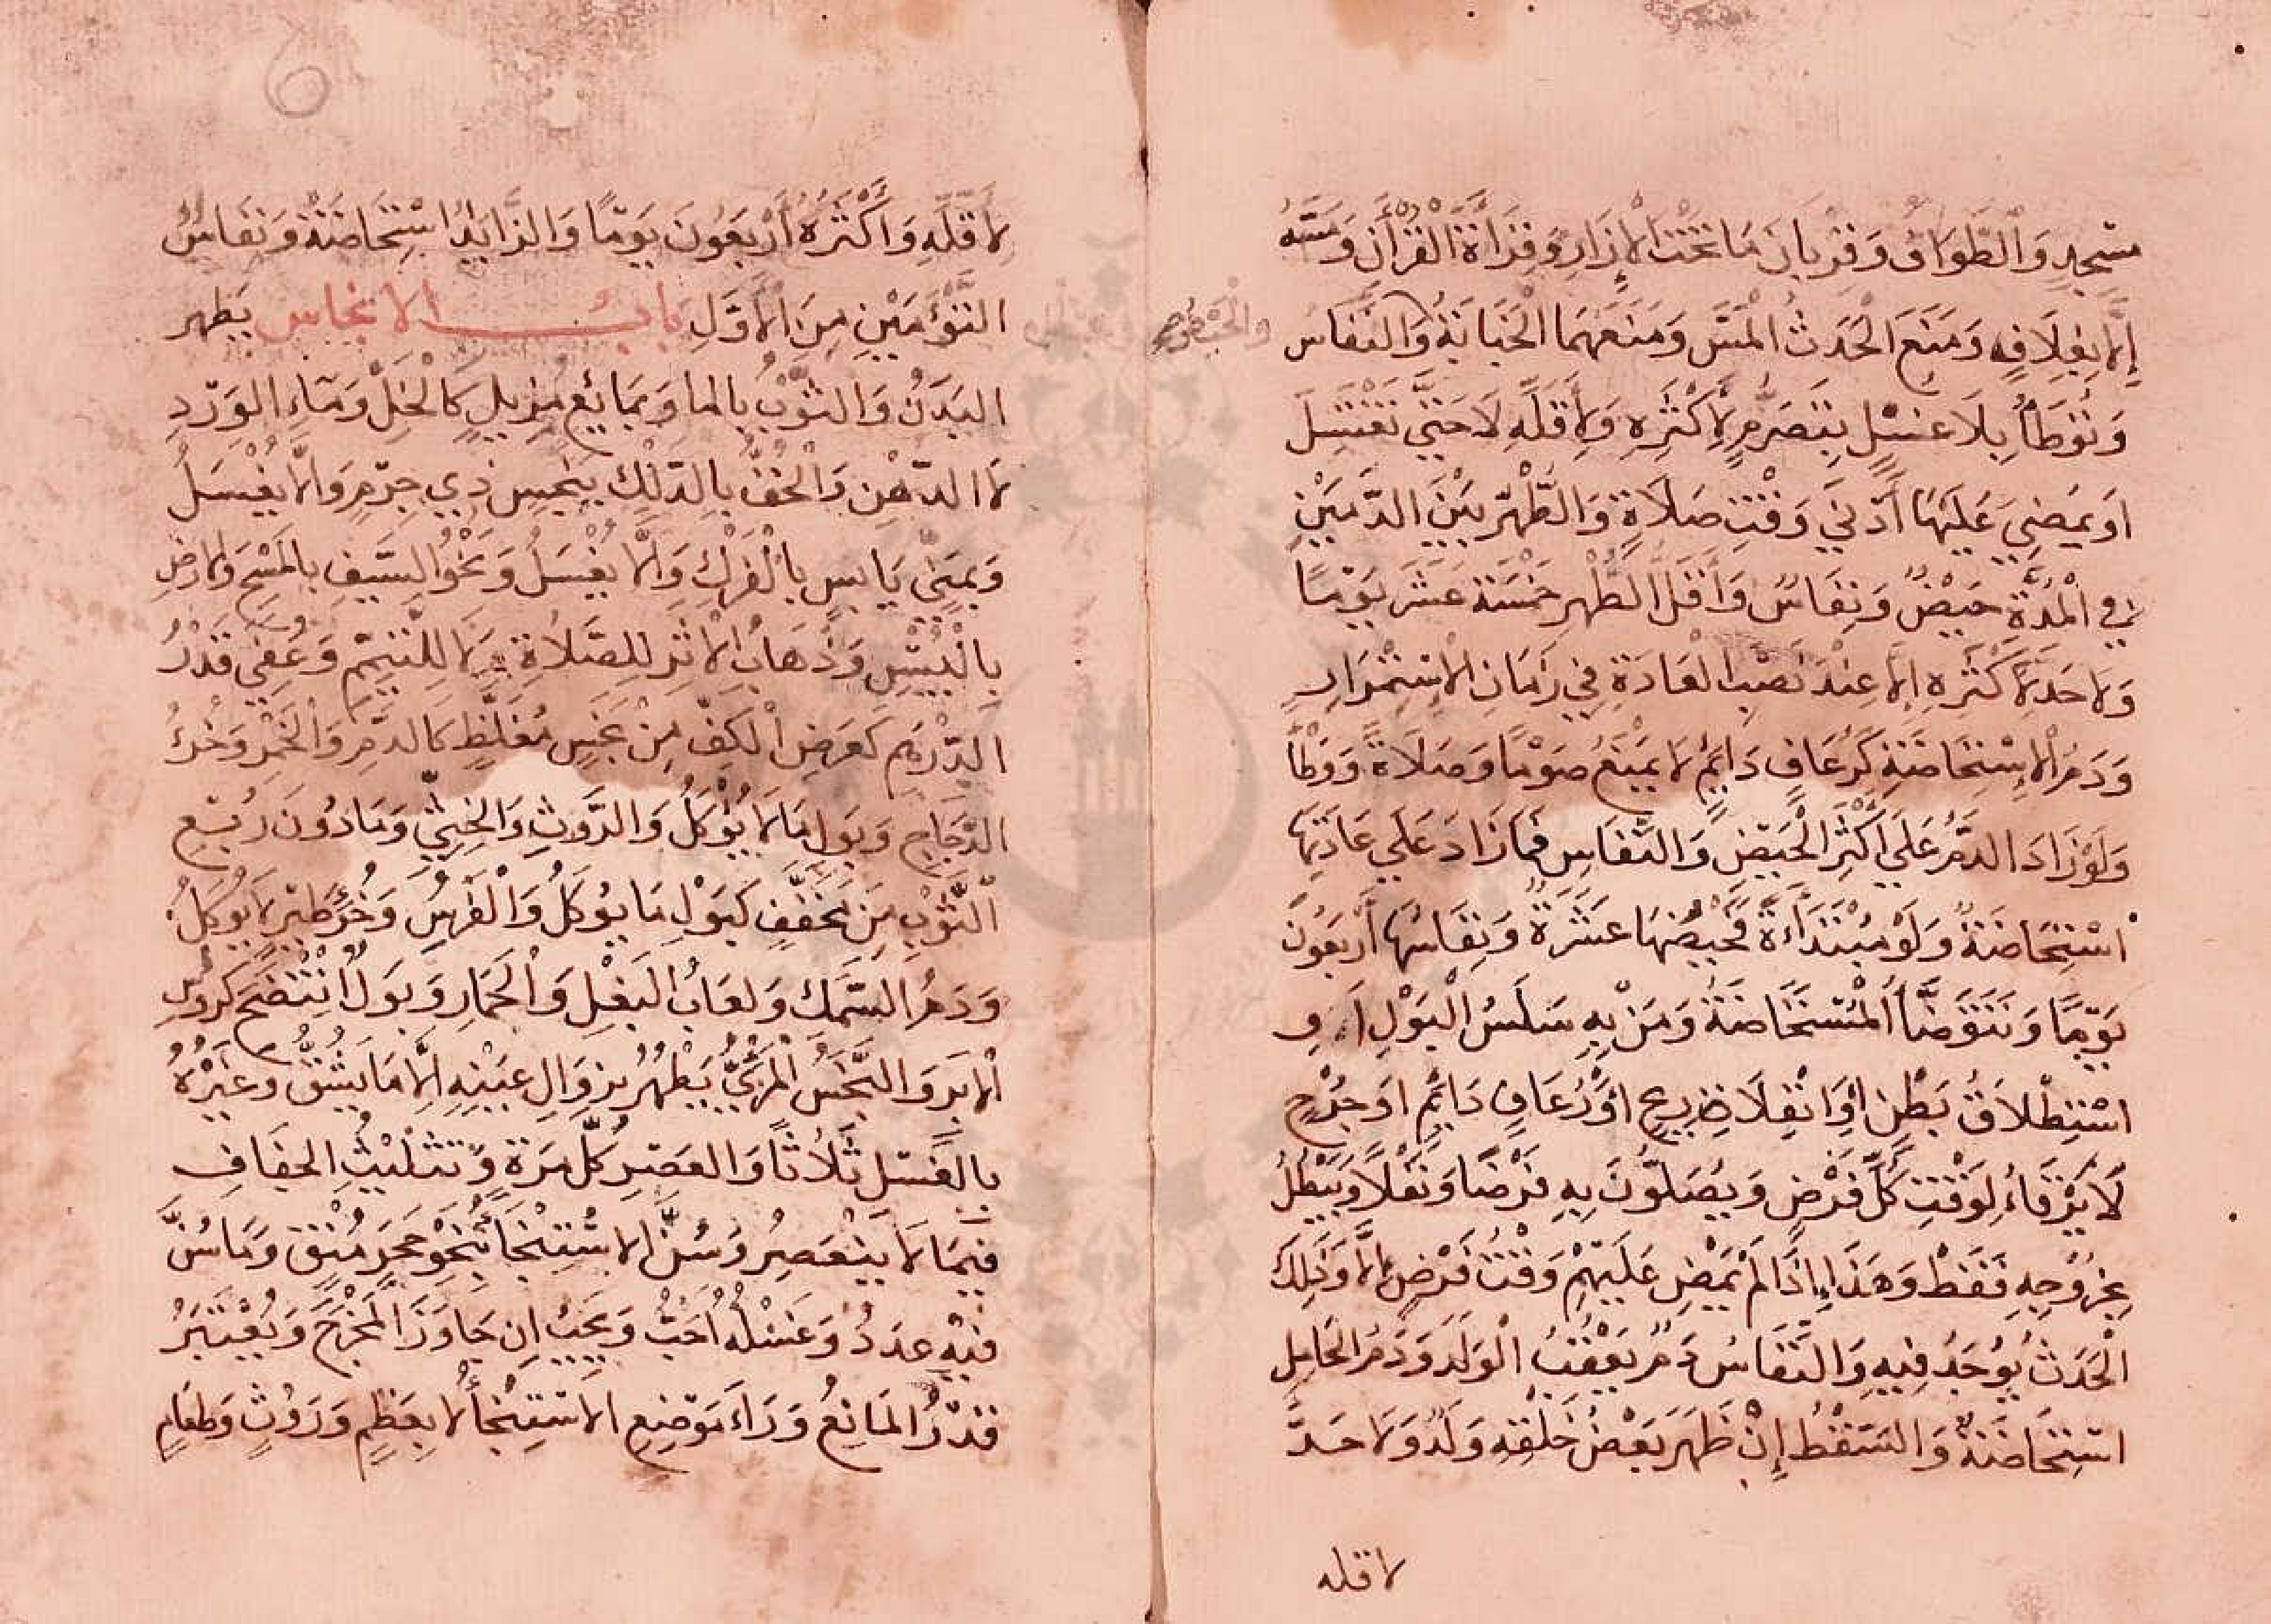 مسْجِدٍ وَالطَّوَافُ وَقِرْبَانَ مَا تَحْتَ الْإِزَارِ وَقِرَاءَةَ الْقُرْأَنِ وَمَسَّهُ
إِلَّا بِغِلَافِهِ وَمَنَعَ الْحَدَثُ الْمَسَّ وَمَنَعَهُمَا الْجَنَابَةُ وَالنِّفَاسُ
وَتُوطَأُ بِلَا غُسْلٍ بِتَصَرُّمٍ لِأَكْثَرِهِ وَلِأَقَلِّهِ لَا حَتَّي تَغْتَسِلَ
اَوْ يَمْضِيَ عَلَيْهَا أَدْنَي وَقْتِ صَلَاةٍ وَالطُّهْرُ بَيْنَ الدَّمَيْنِ
فِي الْمُدَّةِ حَيْضٌ وَنِفَاسٌ وَأَقَلُّ الطُّهْرِ خَمْسَةَ عَشَرَ يَوْمًا
وَلَا حَدَّ لِأَكْثَرِهِ إِلَّا عِنْدَ نَصْبِ الْعَادَةِ فِي زَمَانِ الْاِسْتِمْرَارِ
وَدَمُ الْاِسْتِحَاضَةِ كَرُعَافٍ دَائِمٍ لَا يَمْنَعُ صَوْمًا وَصَلَاةً وَوَطْأً
وَلَوْ زَادَ الدَّمُ عَلَي أَكْثَرِ الْحَيْضِ وَالنِّفَاسِ فَمَا زَادَ عَلَي عَادَتِهَا
اسْتِحَاضَةٌ وَلَوْ مُبْتَدَأَةً فَحَيْضُهَا عَشَرَةٌ وَنِفَاسُهَا أَرْبَعُونَ
يَوْمًا وَتَتَوَضَّأُ الْمُسْتَحَاضَةُ وَمَنْ بِهِ سَلَسُ الْبَوْلِ اَوِ
اسْتِطْلَاقُ بَطْنٍ اَوِ انْفِلَاتُ رِيحٍ اَوْ رُعَافٍ دَائِمٍ اَوْ جُرْحٍ
لَا يَرْقَاءُ لِوَقْتِ كُلِّ فَرْضٍ وَيُصَلُّونَ بِهِ فَرْضًا وَنَفْلًا وَيَبْطُلُ
بِخُرُوجِهِ فَقَطْ وَهَذَا إِذَا لَمْ يَمْضِ عَلَيْهِمْ وَقْتُ فَرْضٍ اِلَّا وَذَلِكَ
الْحَدَثُ يُوجَدُ فِيهِ وَالنِّفَاسُ دَمٌ يَعْقُبُ الْوَلَدَ وَدَمُ الْحَامِلِ
اسْتِحَاضَةٌ وَالسَّقْطُ إِنْ ظَهَرَ بَعْضُ خَلْقِهِ وَلَدٌ وَلَا حَدَّ
لاقله
لِأَقَلِّهِ وَأَكْثَرُهُ أَرْبَعُونَ يَوْمًا وَالزَّايِدُ اسْتِحَاضَةٌ وَنِفَاسُ
التَّوْأَمَيْنِ مِنَ الْأَوَّلِ بَابُ الانجاس يَطْهر
الْبَدَنُ وَالثَّوْبُ بِالْمَا وَبِمَائِعٍ مُزِيلٍ كَالْخَلِّ وَمَاءِ الْوَرْدِ
لَا الدُّهْنِ وَالْخُفُّ بِالدَّلْكِ بِنَجِسٍ ذِي جِرْمٍ وَإِلَّا يُغْسَلُ
وَبِمَنِيٍّ يَابِسٍ بِالْفَرْكِ وَإِلَّا يُغْسَلُ وَنَحْوُ السَّيْفِ بِالْمَسْحِ وَالْارضُ
بِالْيُبْسِ وَذَهَابُ الْاثَرِ لِلصَّلَاةِ لَا لِلتَّيَمُّمِ وَعُفِيَ قَدْرُ
الدِّرْهَمِ كَعَرْضِ الْكَفِّ مِنْ نَجَسٍ مُغَلَّظٍ كَالدَّمِ وَالْخَمْرِ وَخُرْءُ
الدَّجَاجِ وَبَوْلِ مَا لَا يُؤْكَلُ وَالرَّوْثِ وَالْخِثِيِّ وَمَادُونَ رُبْعِ
الثَّوْبِ مِنْ مُخَفَّفٍ كَبَوْلِ مَا يُؤْكَلُ وَالْفَرَسِ وَخُرْءُ طَيْرٍ لَا يُؤْكَلُ
وَدَمُ السَّمَكِ وَلُعَابُ الْبَغْلِ وَالْحِمَارِ وَبَوْلٌ انْتَضَحَ كَرُؤُس
الْاِبَرِ وَالنَّجَسُ الْمَرْئِيُّ يَطْهُرُ بِزَوَالِ عَيْنِهِ اِلَّا مَا يَشُقُّ وَغَيْرُهُ
بِالْغَسْلِ ثَلَاثًا وَالْعَصْرِ كُلَّ مَرَّةٍ وَتَثْلِيثِ الْجَفَافِ
فِيمَا لَا يَنْعَصِرُ وَسُنَّ الْاسْتِنْجَاءُ بِنَحْوِ حَجَرٍ مُنْقٍ وَمَا سُنَّ
فِيْهِ عَدَدٌ وَغَسْلُهُ اَحَبُّ وَيَجِبُ اِنْ جَاوَزَ الْمَخْرَجَ وَيُعْتَبَرُ
قَدْرُ الْمَانِعِ وَرَاءَ مَوْضِعِ الْاسْتِنْجَأِ لَا بِعَظْمٍ وَرَوْثٍ وَطَعَامٍ